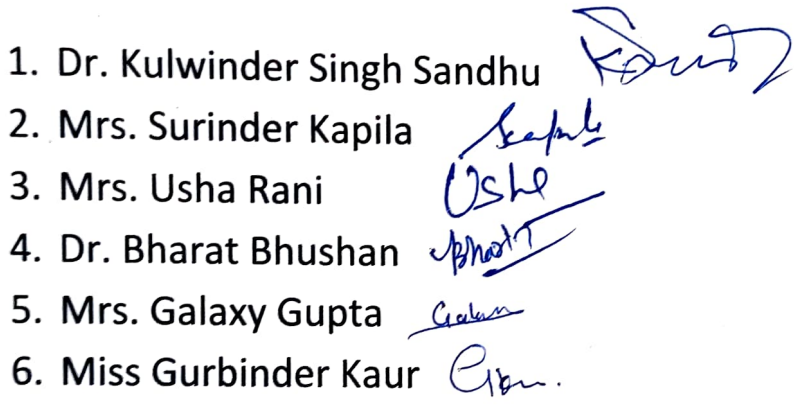 1. Dr. Kulwinder Singh Sandhu
2. Mrs. Surinder Kapila
3. Mrs. Usha Rani Usha
4. Dr. Bharat Bhushan Bharat
5. Mrs. Galaxy Gupta
6. Miss Gurbinder Kaur